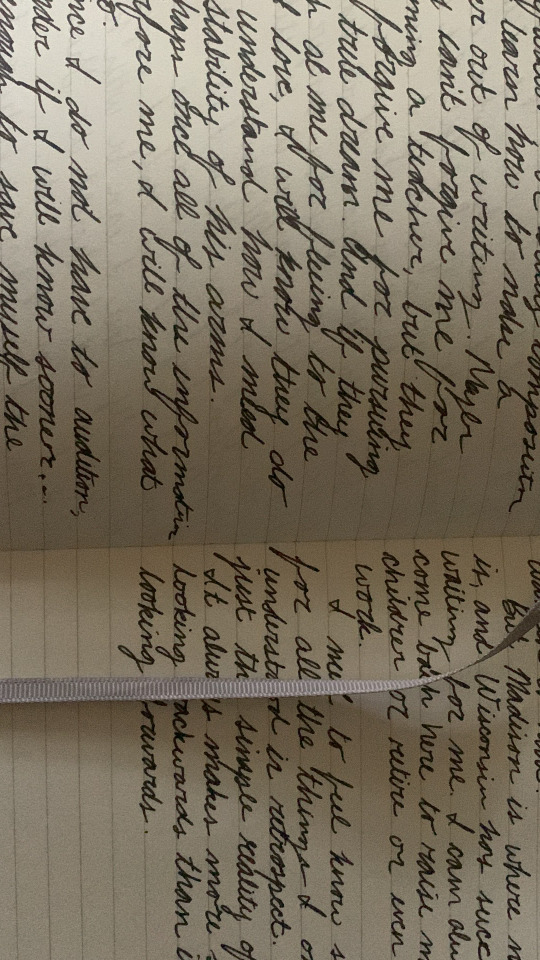 learn how to make a
er out of writing. Maybe
can't forgive me for
ming a teacher, but they
forgive me for pursuing
true dream. And if they
h at me for fleeing to the
love, I will know they do
understand how I need
stability of his arms.
haps once all of the information
fore me, I will know what
o.
nce I do not have to audition,
nder if I will know sooner...
to save myself the
But Madison is where m
is, and Wisconsin has
waiting for me. I can
come back here to raise m
children or retire or even
work.
I to feel know
for all the things I
understood in retrospect.
just the simple reality of
It always makes more
looking backwards than i
looking forwards.